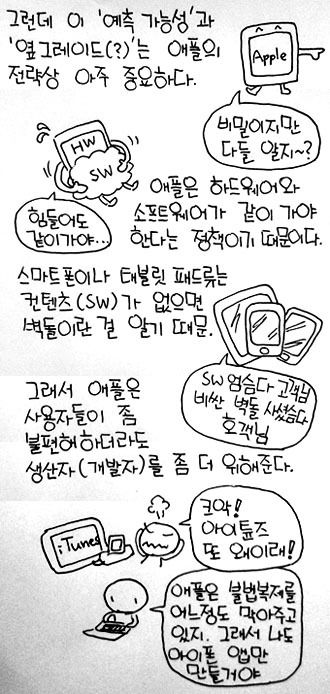 그런데 이 '예측 가능성'과
'옆그레이드(?)'는 애플의
전략상 아주 중요하다.
Apple
비밀이지만
다들 알지~?
HW
SW
힘들어도
같이가야...
애플은 하드웨어와
소포트웨어가 같이 가야
한다는 정책이기 때문이다.
스마트폰이나 태블릿 패드류는
컨텐츠(SW)가 없으면
벽돌이란 걸 알기 때문.
SW 없슴다 고객님
비싼 벽돌 사셨슴다
호갱님
그래서 애플은
사용자들이 좀
불편해하더라도
생산자(개발자)를 좀 더 위해준다.
iTunes
크악!
아이튠즈
또 왜이래!
애플은 불법복제를
어느정도 막아주고
있지. 그래서 나도
아이폰 앱만
만들거야